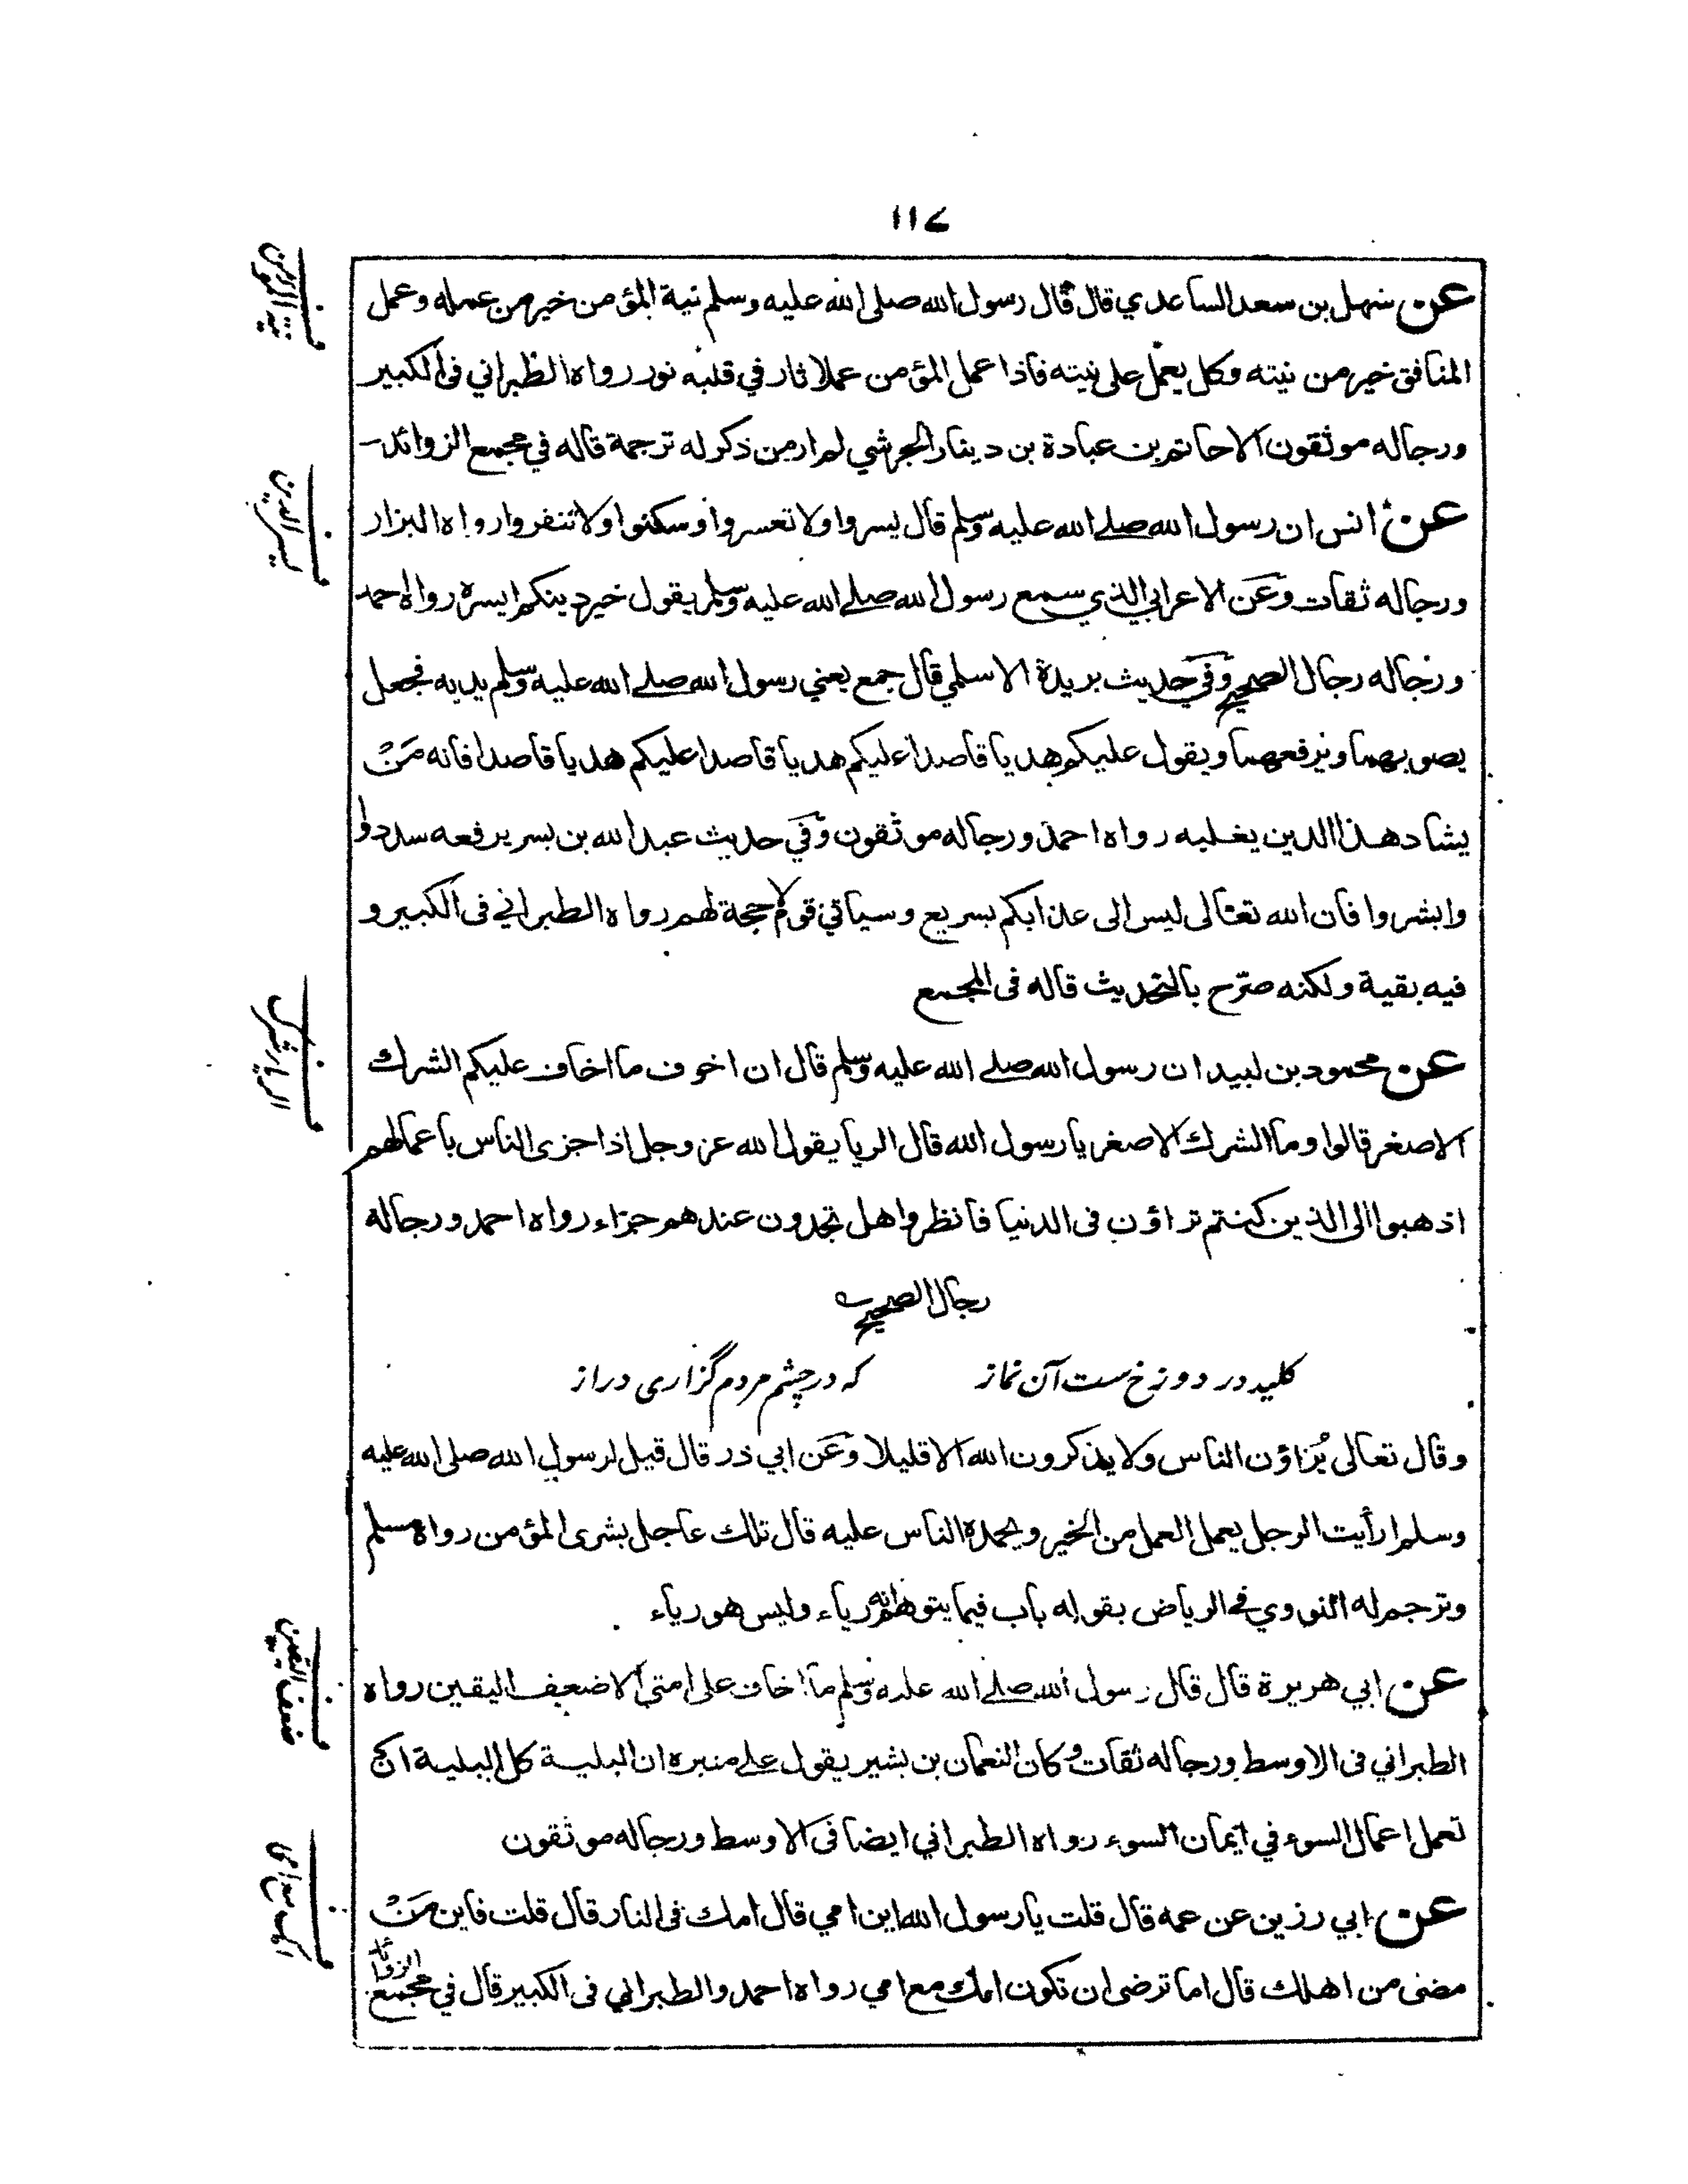 ١١٧
عن سهل بن سعد الساعدي قال قال رسول الله صلى الله عليه وسلم نية المؤمن خير من عمله وعمل
المنافق خير من نيته وكل يعمل على نيته فاذا عمل المؤمن عملا نار في قلبه نور رواه الطبراني في الكبير
ورجاله موثقون الا حاتم بن عبادة بن دينار الجرشي لم ار من ذكر له ترجمة قاله في مجمع الزوائد
عن انس ان رسول الله صلے الله عليه وسلم قال يسروا ولا تعسروا وسكنوا ولا تنفروا رواه البزار
ورجاله ثقات وعن الاعرابي الذي سمع رسول الله صلے الله عليه وسلم يقول خير دينكم ايسره رواه احمد
ورجاله رجال الصحيح وفي حديث بريدة الاسلمي قال جمع يعني رسول الله صلے الله عليه وسلم يديه فجعل
يصوبهما ويرفعهما ويقول عليكم هديا قاصدا عليكم هديا قاصدا عليكم هديا قاصدا فانه من
يشاد هذا الدين يغلبه رواه احمد ورجاله موثقون وفي حديث عبد الله بن بسر يرفعه سددوا
وابشروا فان الله تعالى ليس الى عذابكم بسريع وسياتي قوم لا حجة لهم رواه الطبراني في الكبير و
فيه بقية ولكنه صرح بالتحديث قاله في المجمع
عن محمود بن لبيد ان رسول الله صلے الله عليه وسلم قال ان اخوف ما اخاف عليكم الشرك
الاصغر قالوا وما الشرك الاصغر يا رسول الله قال الريا يقول الله عز وجل اذا جزى الناس باعمالهم
اذهبوا الى الذين كنتم تراؤن في الدنيا فانظروا هل تجدون عندهم جزاء رواه احمد ورجاله
رجال الصحيح
کلید در دوزخ ست آن نماز که در چشم مردم گزاری دراز
وقال تعالى يُرَاؤن الناس ولا يذكرون الله الا قليلا وعن ابي ذر قال قيل لرسول الله صلى الله عليه
وسلم ارأيت الرجل يعمل العمل من الخير ويحمده الناس عليه قال تلك عاجل بشرى المؤمن رواه مسلم
وترجم له النووي في الرياض بقوله باب فيما يتوهم انه رياء وليس هو رياء
عن ابي هريرة قال قال رسول الله صلے الله عليه وسلم ما اخاف على امتي الا ضعف اليقين رواه
الطبراني في الاوسط ورجاله ثقات وكان النعمان بن بشير يقول علے منبره ان البلية كل البلية ان
تعمل اعمال السوء في ايمان السوء رواه الطبراني ايضا في الاوسط ورجاله موثقون
عن ابي رزين عن عمه قال قلت يا رسول الله اين امي قال امك في النار قال قلت فاين مَنْ
مضى من اهلك قال اما ترضى ان تكون امك مع امي رواه احمد والطبراني في الكبير قال في مجمع الزوائد
ف نية المؤمن
ف يسر الدين
ف الريا شرك
ف ضعف اليقين
ف امك مع امي